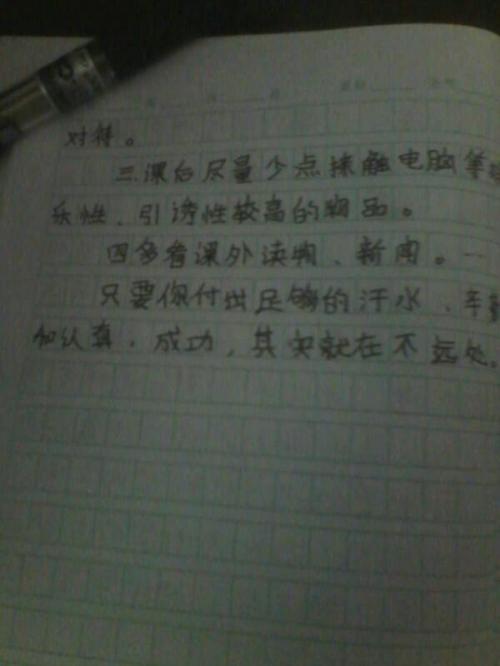 对待。
三课后尽量少点接触电脑等
乐性、引诱性较高的物品。
四多看课外读物、新闻。一
只要你付出足够的汗水、辛
加认真,成功,其实就在不远处。